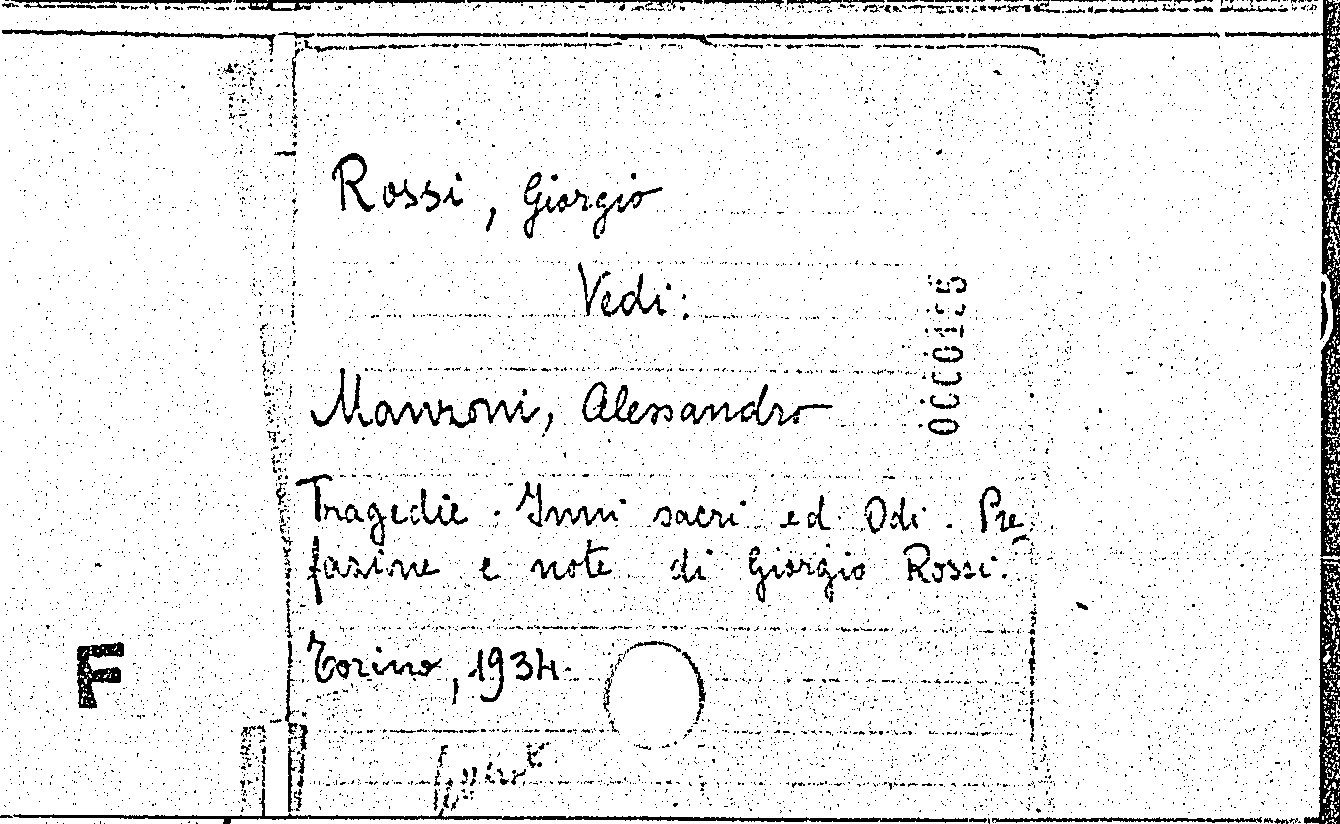 Rossi, Giorgio
Vedi:
Manzoni, Alessandro
Tragedie. Inni sacri ed Odi. Pre
fazine e note di Giorgio Rossi.
Torino, 1934.
F